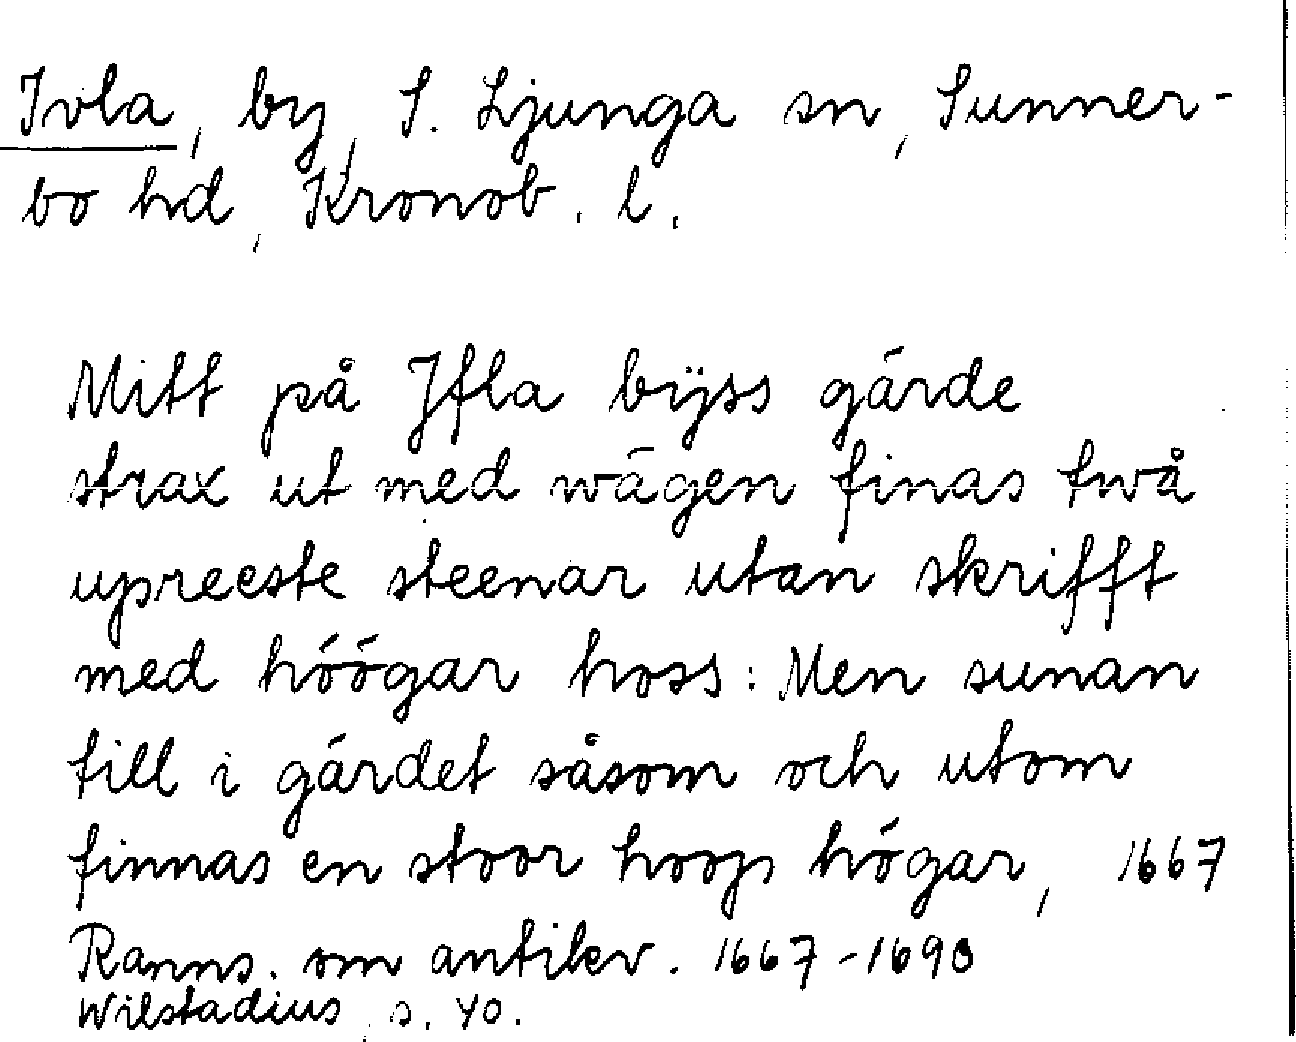 Ivla, by, S. Ljunga sn, Sunner-
bo hd, Kronob. l.
Mitt på Jfla bÿss gärde
strax ut med wägen finas twå
upreeste steenar utan skrifft
med höögar hoss: Men sunan
till i gärdet såsom och utom
finnas en stoor hoop högar, 1667
Ranns. om antikv. 1667-1690
Wilstadius, s. 40.